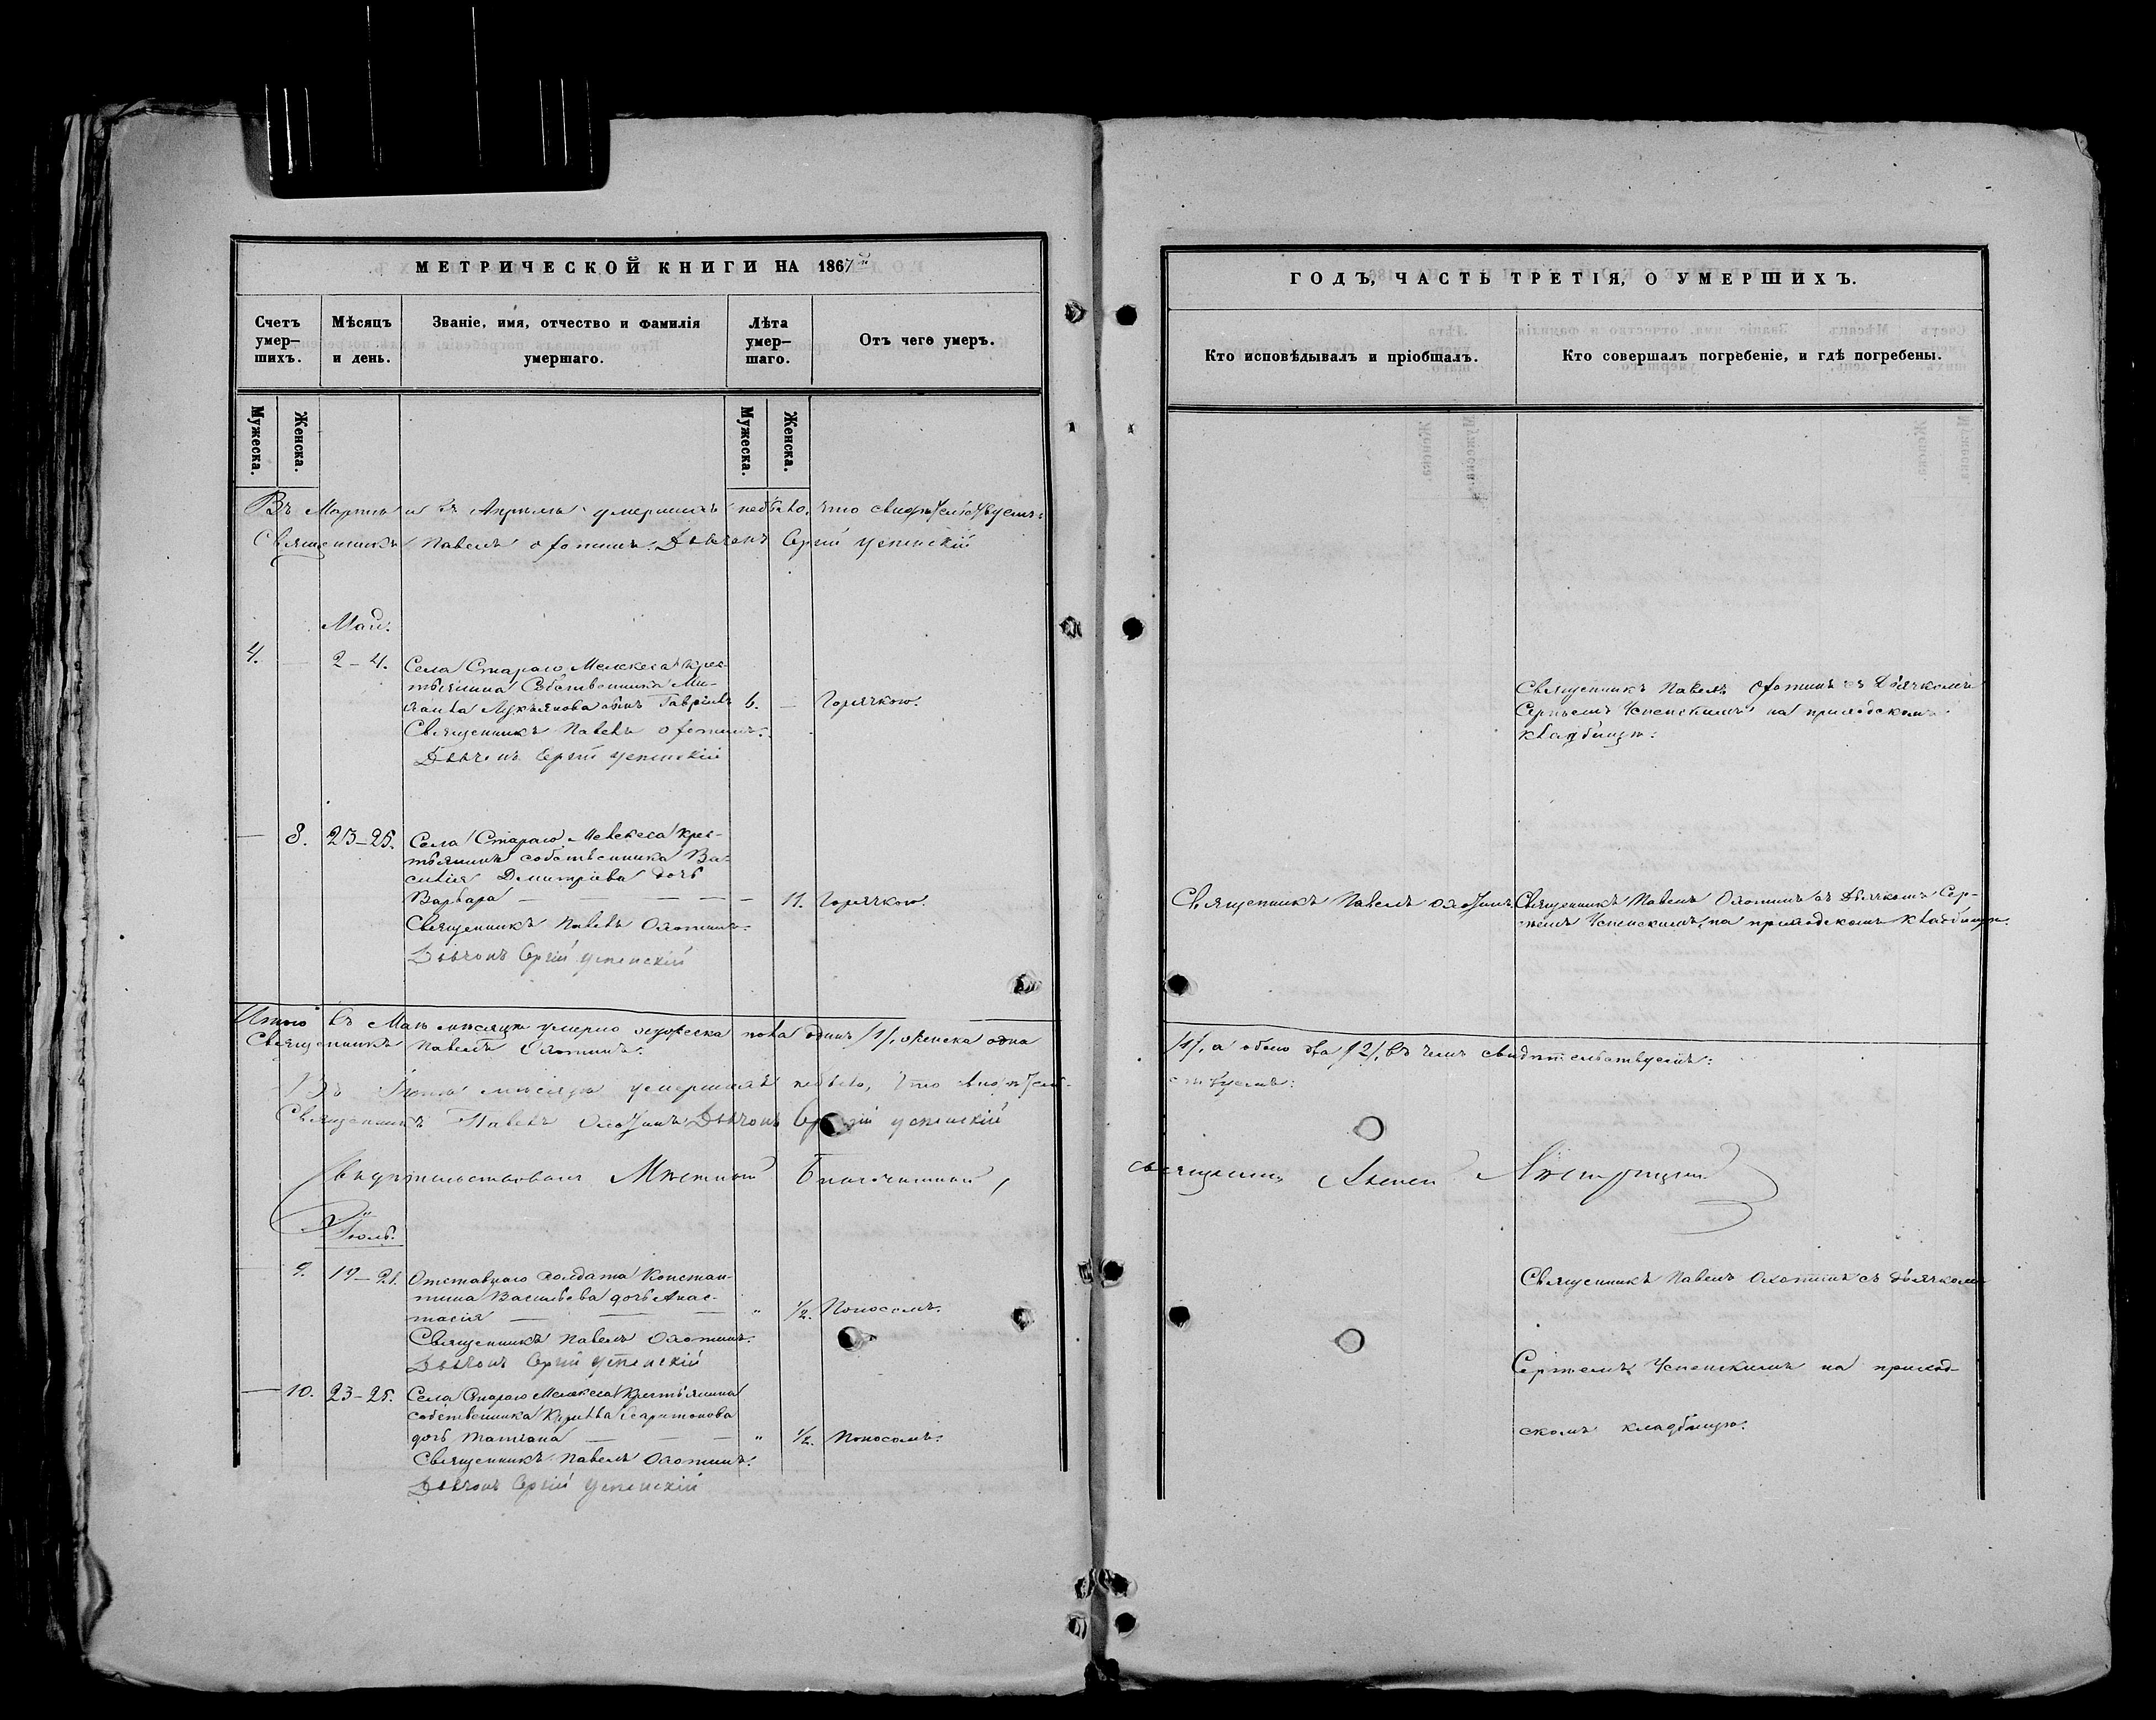 МЕТРИЧЕСКОЙ КНИГИ НА 1867й
Счетъ умер-шихъ.
Мѣсяцъ и день.
Званіе, имя, отчество и фамилія умершаго.
Лѣта умер-шаго.
Отъ чего умеръ.
Мужеска.
Женска.
Мужеска.
Женска.
Въ Мартѣ и въ Апрѣлѣ умершихъ небыло, что свидѣтельствуемъ:
Священникъ Павелъ Охотинъ. Дьячокъ Сергій Успенскій
Май.
4. — 2-4. Села Стараго Мелекеса крес-
тьянина Собственника
Лукьянова сынъ Гавріилъ 6. — Горячкою.
Священникъ Павелъ Охотинъ.
Дьячокъ Сергій Успенскій
— 8. 23-25. Села Стараго Мелекеса крес-
тьянина собственника Ва-
силія Димитріева дочь
Варвара — — — — 11. Горячкою.
Священникъ Павелъ Охотинъ.
Дьячокъ Сергій Успенскій
Итого въ Маѣ мѣсяцѣ умерло мужеска пола одинъ /1/, женска одна
Священникъ Павелъ Охотинъ.
Въ Іюнѣ мѣсяцѣ умершихъ небыло, что свидѣтель-
Священникъ Павелъ Охотинъ Дьячокъ Сергій Успенскій
Свидѣтельствовалъ Мѣстный Благочинный,
Іюль.
— 9. 19-21. Отставнаго солдата Констан-
тина Васильева дочь Анас-
тасія — — — " 1/2. Поносомъ.
Священникъ Павелъ Охотинъ.
Дьячокъ Сергій Успенскій
— 10. 23-25. Села Стараго Мелекеса Крестьянина
собственника Кирилла Харитонова
дочь Татіана — — — " 1/2. Поносомъ.
Священникъ Павелъ Охотинъ.
Дьячокъ Сергій Успенскій
ГОДЪ, ЧАСТЬ ТРЕТІЯ, О УМЕРШИХЪ.
Кто исповѣдывалъ и пріобщалъ.
Кто совершалъ погребеніе, и гдѣ погребены.
Священникъ Павелъ Охотинъ съ Дьячкомъ
Сергѣемъ Успенскимъ на приходскомъ
кладбищѣ:
Священникъ Павелъ Охотинъ
Священникъ Павелъ Охотинъ съ Дьячкомъ Сер-
гѣемъ Успенскимъ, на приходскомъ кладбищѣ.
/1/, а обоего два /2/, въ чемъ свидѣтельствуемъ:
ствуемъ:
священникъ
Священникъ Павелъ Охотинъ съ дьячкомъ
Сергѣемъ Успенскимъ на приход-
скомъ кладбищѣ.